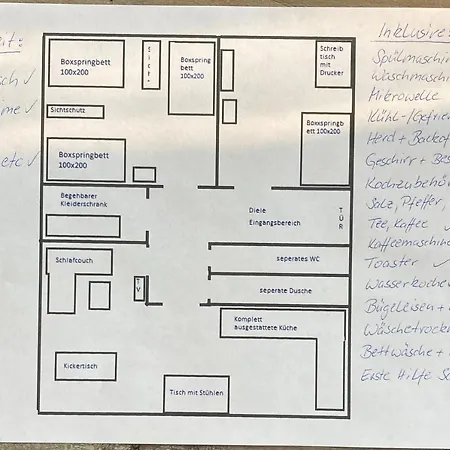 Inklusive:
Boxspringbett
100x200
Boxspring
bett
100x200
Schreib
tisch
mit
Drucker
Sichtschutz
Boxspringbett
100x200
Boxspringb
ett 100x200
Begehbarer
Kleiderschrank
Diele
Eingangsbereich
TÜR
Schlafcouch
TV
seperates WC
seperate Dusche
Komplett
ausgestattete Küche
Kickertisch
Tisch mit Stühlen
etc ✓
Mikrowelle
Kühl-/Gefrie
Geschirr + Bes
Kochzubehö
Salz, Pfeffer,
Tee, Kaffee ✓
Kaffeemaschine
Toaster ✓
Wasserkocher
Bügeleisen +
Wäschetrockn
Bettwäsche +
Erste Hilfe Se